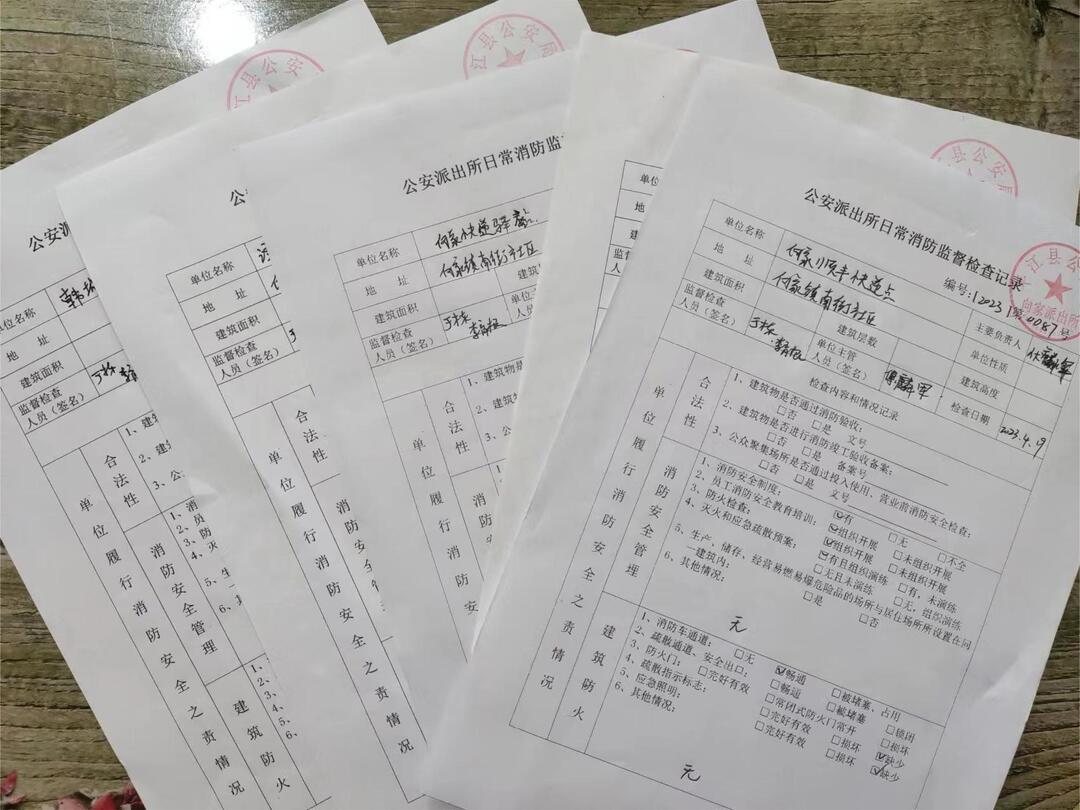 江县公安
江县公安局
江县公安
公安派
单位名称
地 址
建筑面积
监督检查
人员（签名）
单位履行消防安全之责情况
合法性
1、建筑
2、建
3、公
消防安全管理
1、消
2、员
3、防火
4、灭
5、生
6、其
建筑防火
1、
2、
3、
4、
5、
6、
公
单位名称
地 址
建筑面积
监督检查
人员（签名）
单位履行消防安全之责情况
合法性
公安派出所日常消防监
单位名称 何家快递驿站
地 址 何家镇南街社区
建筑面积
单位主
监督检查
人员（签名）
单位履行消防安全
合法性
1、建筑物是
2、建
3、公众
消防安
单位
地
建
监
人
公安派出所日常消防监督检查记录
江县公安局
向家派出所
编号:[2023]第0087号
单位名称 何家顺丰快递点 主要负责人
地 址 何家镇南街社区 单位性质
建筑面积 建筑层数 建筑高度
监督检查
人员（签名） 单位主管
人员（签名） 检查日期 2023.4.9
检查内容和情况记录
单位履行消防安全之责情况
合法性
1、建筑物是否通过消防验收:
□否 □是 文号
2、建筑物是否进行消防竣工验收备案:
□否 □是 备案号
3、公众聚集场所是否通过投入使用、营业前消防安全检查:
□否 □是 文号
消防安全管理
1、消防安全制度: ☑有 □无 □不全
2、员工消防安全教育培训: ☑组织开展 □未组织开展
3、防火检查: ☑组织开展 □未组织开展
4、灭火和应急疏散预案: ☑有且组织演练 □有，未演练
□无且未演练 □无，组织演练
5、生产、储存、经营易燃易爆危险品的场所与居住场所设置在同
一建筑内: □是 □否
6、其他情况:
无
建筑防火
1、消防车通道: □无 ☑畅通 □被堵塞、占用
2、疏散通道、安全出口: □畅通 □被堵塞 □锁闭
3、防火门: □完好有效 □常闭式防火门常开 □损坏
4、疏散指示标志: □完好有效 □损坏 ☑缺少
5、应急照明: □完好有效 □损坏 ☑缺少
6、其他情况:
无